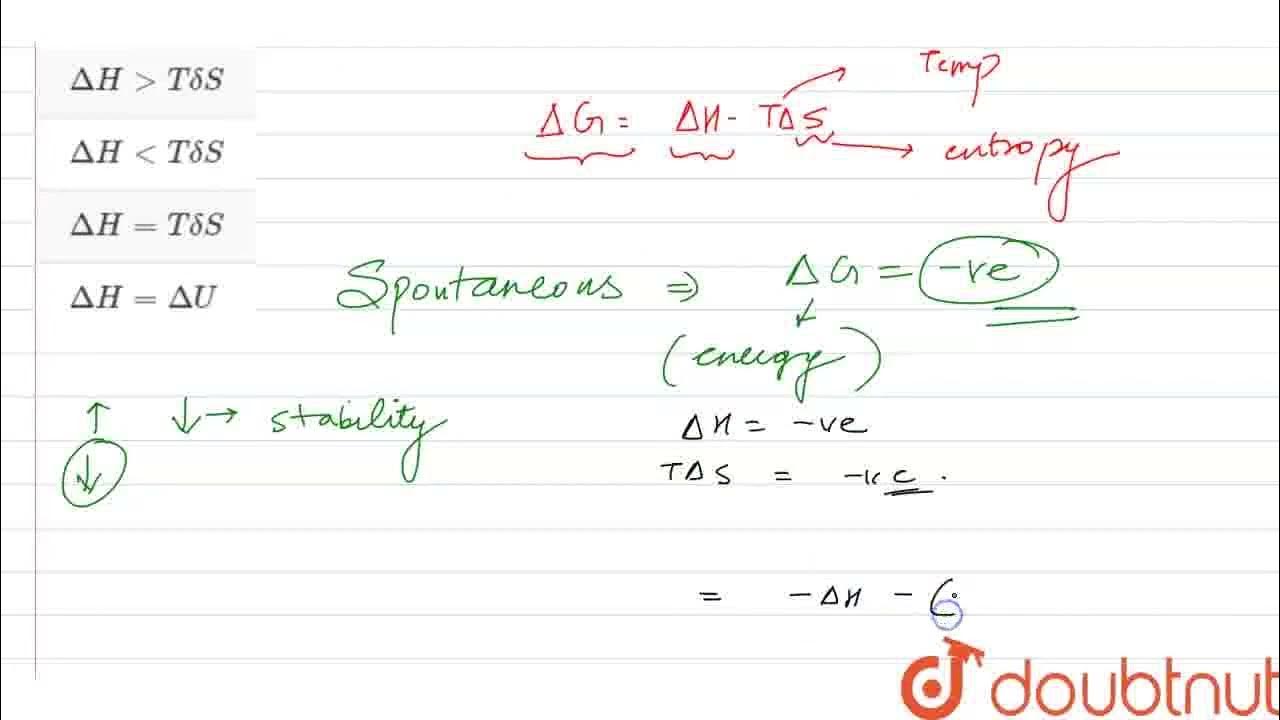 ΔH > TδS
ΔH < TδS
ΔH = TδS
ΔH = ΔU
Temp
ΔG = ΔH - TΔS
entropy
Spontaneous ⇒ ΔG = -ve
(energy)
↑ ↓ → stability
↓
ΔH = -ve
TΔS = -ve.
= -ΔH - (
doubtnut